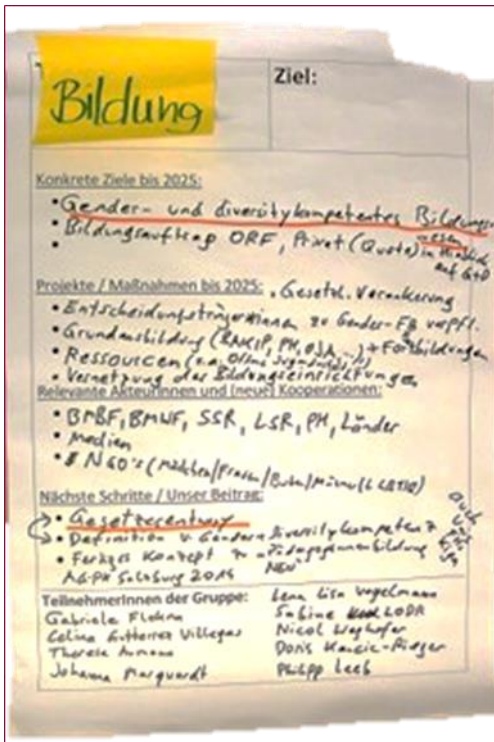 Bildung
Ziel:
Konkrete Ziele bis 2025:
• Gender- und diversitykompetentes Bildungs-
wesen
• Bildungsauftrag ORF, Privat (Quote) in Hinblick
auf G+D
•
Projekte / Maßnahmen bis 2025: • Gesetzl. Verankerung
• EntscheidungsträgerInnen zu Gender-FB verpfl.
• Grundausbildung (BAKIP, PH, ...) + Fortbildungen
• Ressourcen
• Vernetzung der Bildungseinrichtungen
Relevante AkteurInnen und (neue) Kooperationen:
• BMBF, BMWF, SSR, LSR, PH, Länder
• Medien
• NGO's (Mädchen/Frauen/Buben/Männer/LGBTIQ)
Nächste Schritte / Unser Beitrag:
• Gesetzesentwurf
• Definition v. Gender+Diversitykompetenz
auch
• Fertiges Konzept PädagogInnenbildung
NEU
AG-PH Salzburg 2014
TeilnehmerInnen der Gruppe:
Lena Lisa Vogelmann
Gabriele
Sabine
Celina Gutierrez Villegas
Nicol
Therese
Doris
Johanna Marquardt
Philipp Leeb